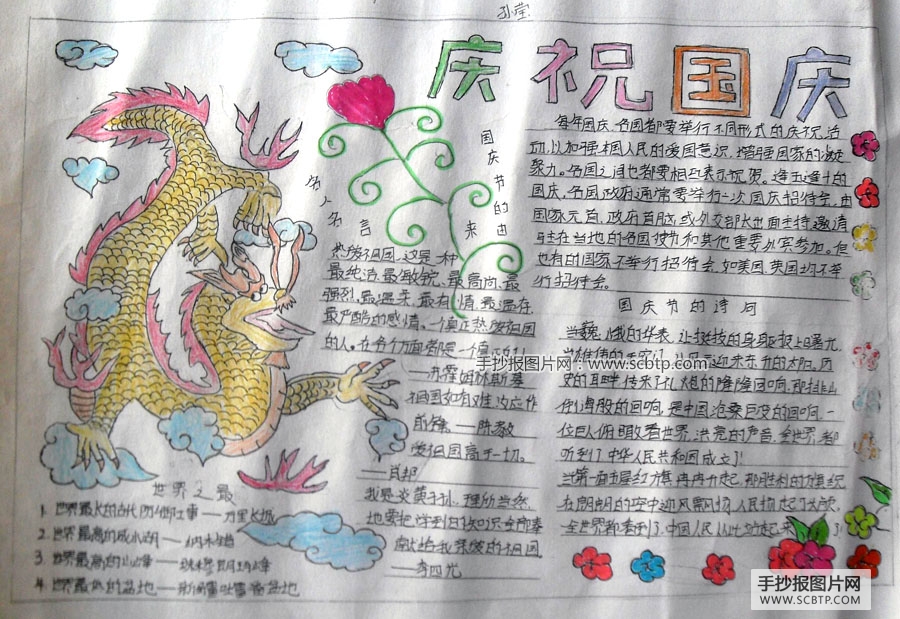 孙莹
庆祝国庆
国庆节的由来
名人名言
每年国庆，各国都要举行不同形式的庆祝活
动，以加强本国人民的爱国意识，增强国家的凝
聚力。各国之间也都要相互表示祝贺。逢五逢十的
国庆，各国政府通常要举行一次国庆招待会，由
国家元首、政府首脑或外交部长出面主持，邀请
驻在当地的各国使节和其他重要外宾参加。但
也有的国家不举行招待会，如美国、英国均不举
行招待会。
热爱祖国，这是一种
最纯洁、最敏锐、最高尚、最
强烈、最温柔、最有情、最温存、
最严酷的感情。一个真正热爱祖国
的人，在各个方面都是一个真正的人
——苏霍姆林斯基
祖国如有难汝应作
前锋 —陈毅
爱祖国高于一切。
——肖邦
我是炎黄子孙，理所当然
地要把学到的知识全部奉
献给我亲爱的祖国
——李四光
国庆节的诗词
当巍峨的华表，让挺拔的身躯披上曙光
当雄伟的天安门，让风云迎来东升的太阳，历
史的耳畔，传来礼炮的隆隆回响，那排山
倒海般的回响，是中国沧桑巨变的回响，一
位巨人俯瞰着世界，洪亮的声音，全世界都
听到了中华人民共和国成立了！
当第一面五星红旗冉冉升起，那胜利的旗帜
在朗朗的空中迎风飘扬，人民扬起了头颅
全世界都看到了，中国人民从此站起来了！
世界之最
1. 世界最长的古代防御工事——万里长城
2. 世界最高的咸水湖——纳木错
3. 世界最高的山峰——珠穆朗玛峰
4. 世界最热的盆地——新疆吐鲁番盆地
手抄报图片网：www.scbtp.com
手抄报图片网
WWW.SCBTP.COM